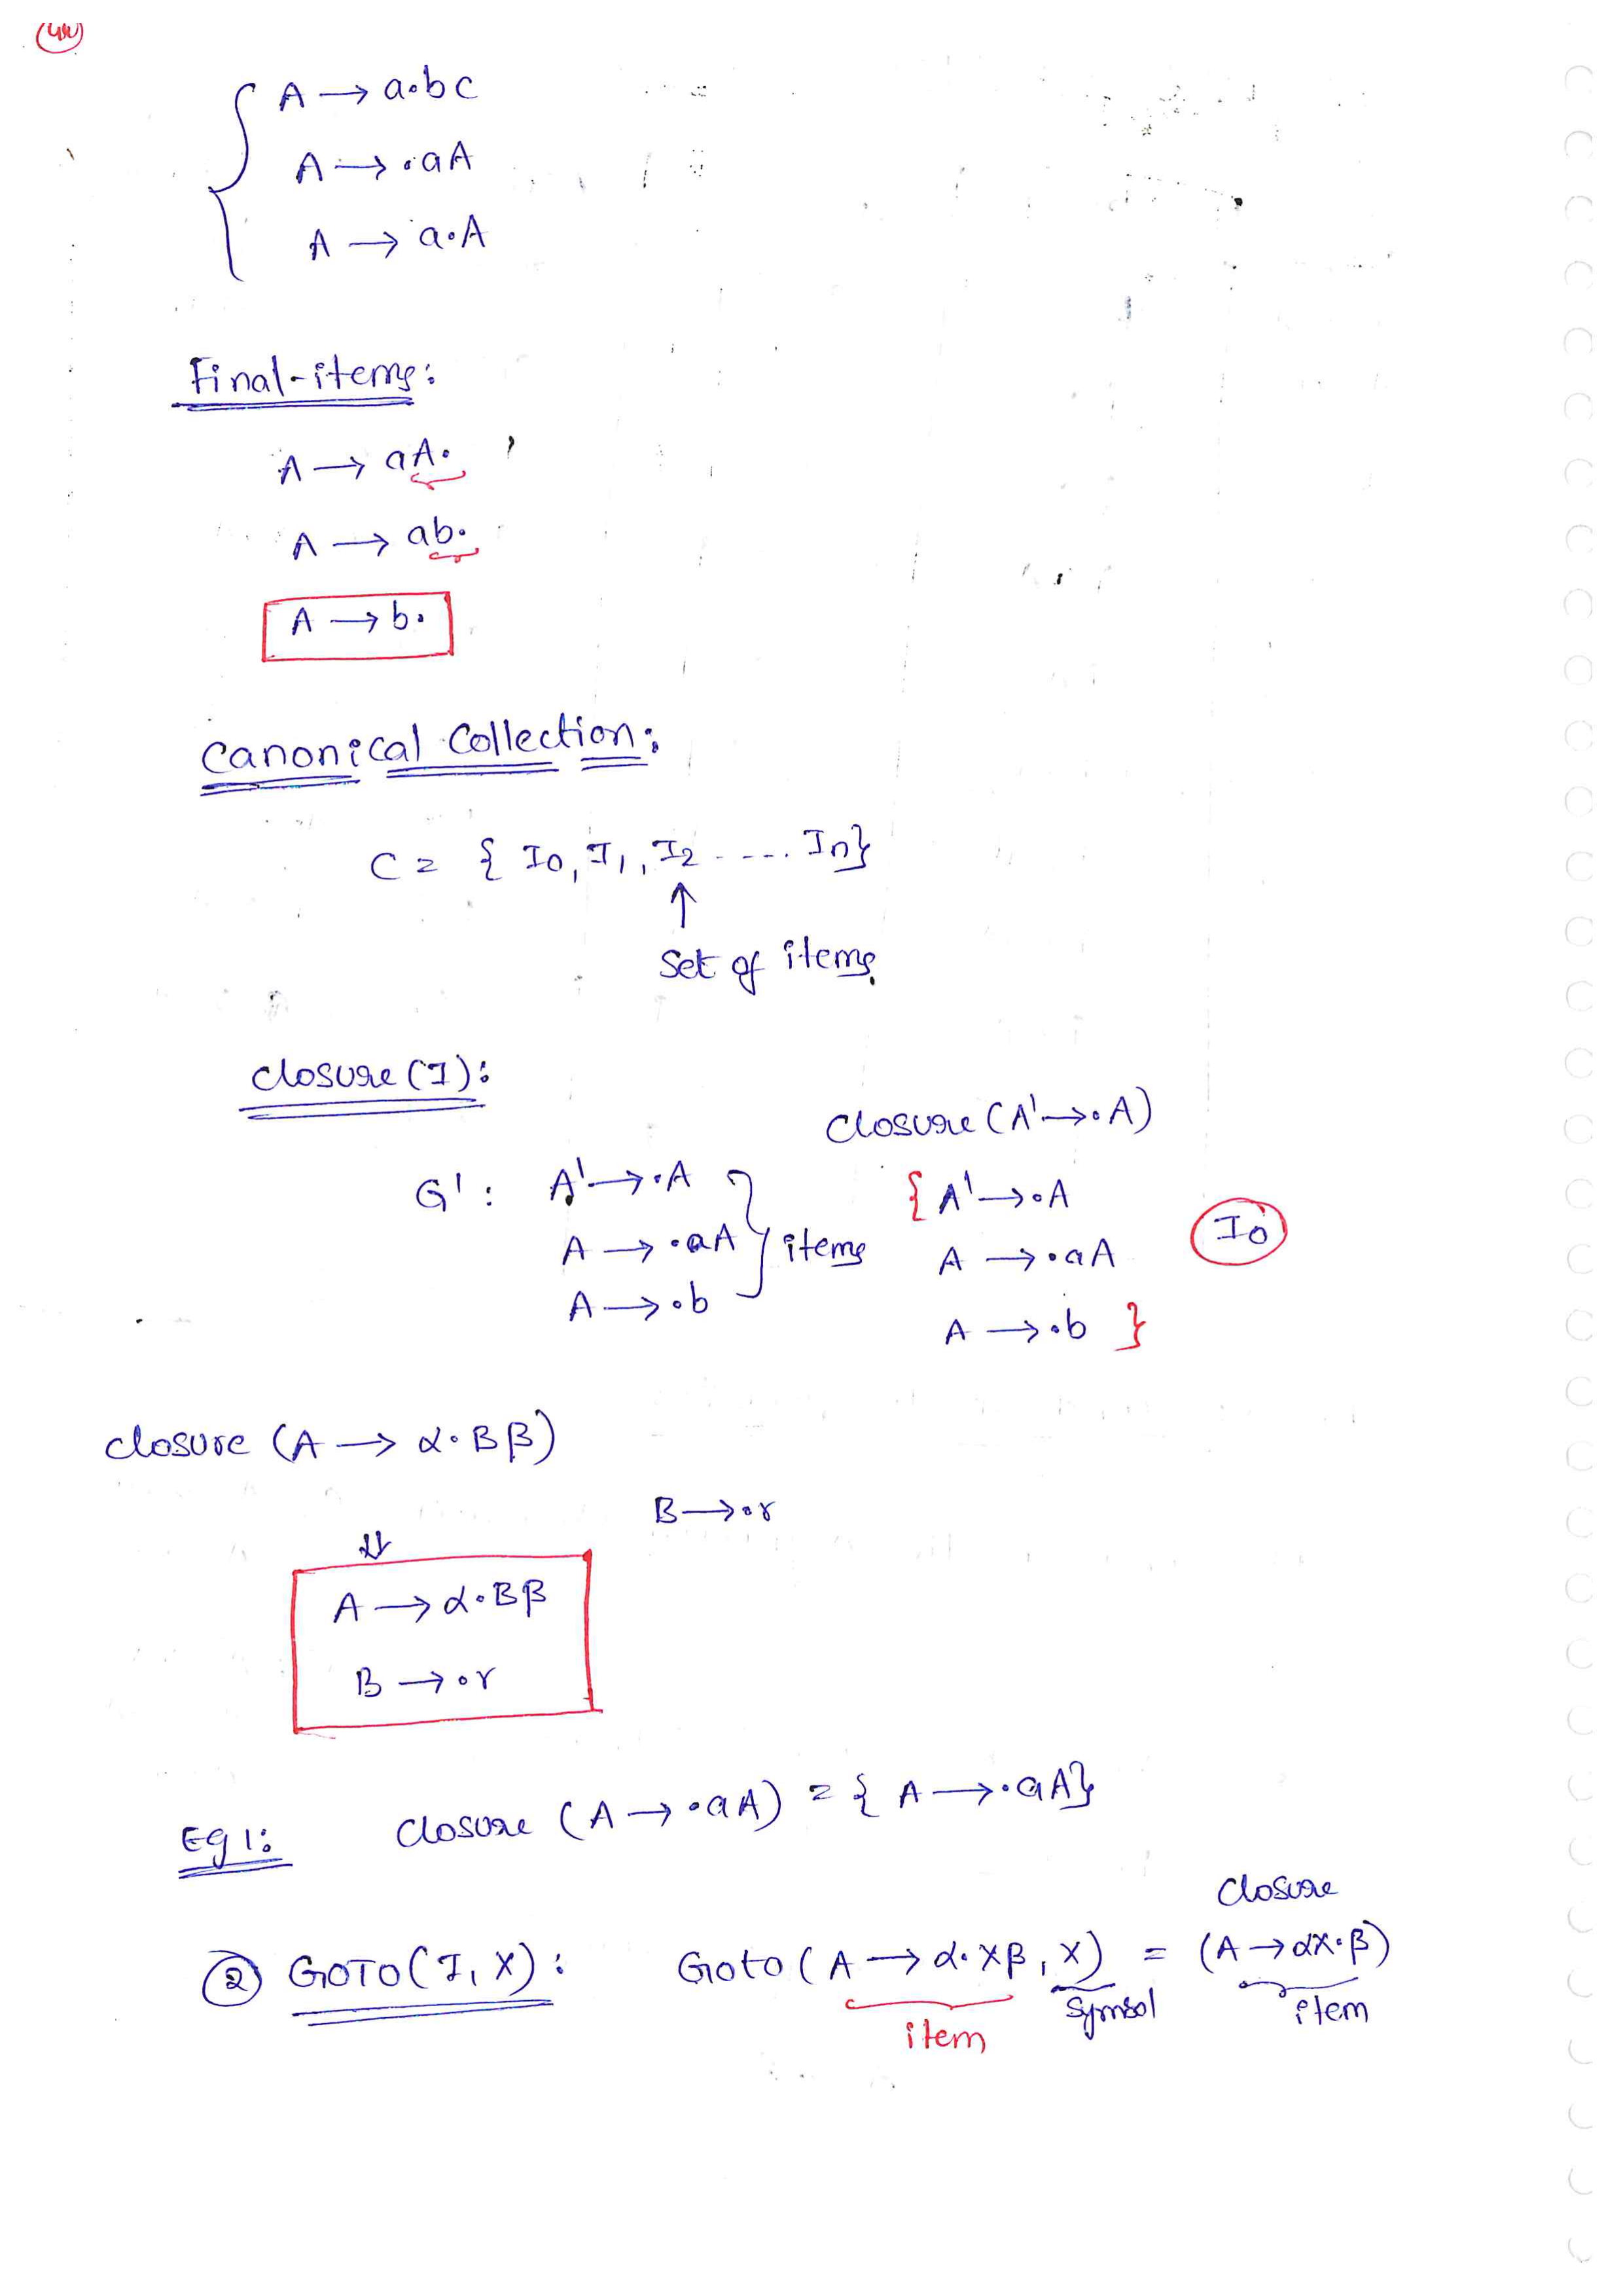 A → a.bc
A → .aA
A → a.A
Final-items:
A → aA.
A → ab.
A → b.
Canonical Collection:
C = { I0, I1, I2 ..... In}
↑
Set of items.
closure (I):
closure (A' → .A)
G' : A' → .A
A → .aA
A → .b
items
{ A' → .A
A → .aA
A → .b }
I0
closure (A → α.Bβ)
B → .r
⇓
A → α.Bβ
B → .r
Eg 1: closure (A → .aA) = { A → .aA}
② GOTO(I, X) : Goto ( A → α.Xβ, X) = closure (A → αX.β)
item symbol item